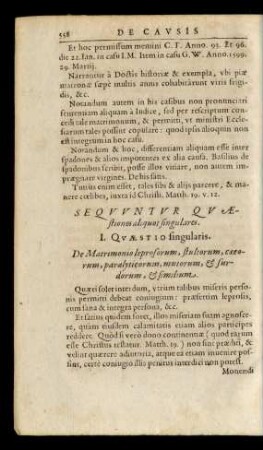 558 DE CAVSIS
Et hoc permissum memini C. F. Anno. 95. Et 96.
die 22. Ian. in casu I.M. Item in casu G. W. Anno. 1599.
29. Martij.
Narrantur à Doctis historiæ & exempla, vbi piæ
matronæ sæpè multis annis cohabitârunt viris frigi-
dis, &c.
Notandum autem in his casibus non pronunciari
sententiam aliquam à Iudice, sed per rescriptum con-
cedi tale matrimonium, & permitti, vt ministri Eccle-
siarum tales possint copulare: quod ipsis alioqui non
est integrum in hoc casu.
Notandum & hoc, differentiam aliquam esse inter
spadones & alios impotentes ex alia causa. Basilius de
spadonibus scribit, posse illos vitiare, non autem im-
prægnare virgines. De his satis.
Tutius enim esset, tales sibi & alijs parcere, & ma-
nere cœlibes, iuxta id Christi. Matth. 19. v. 12.
SEQVVNTVR QVÆ-
stiones aliquot singulares.
I. QVÆSTIO singularis.
De Matrimonio leprosorum, stultorum, cæco-
rum, paralyticorum, mutorum, & sur-
dorum, & similium.
Quæri solet interdum, vtrum talibus miseris perso-
nis permitti debeat coniugium: præsertim leprosis,
cum sana & integra persona, &c.
Et satius quidem foret, illos miseriam suam agnosce-
re, quam eiusdem calamitatis etiam alios participes
reddere. Quòd si verò dono continentiæ (quod rarum
esse Christus testatur. Matth. 19.) non sint præditi, &
velint quærere adiutoria, atque ea etiam inuenire pos-
sint, certè coniugio illis penitus interdici non potest.
Monendi